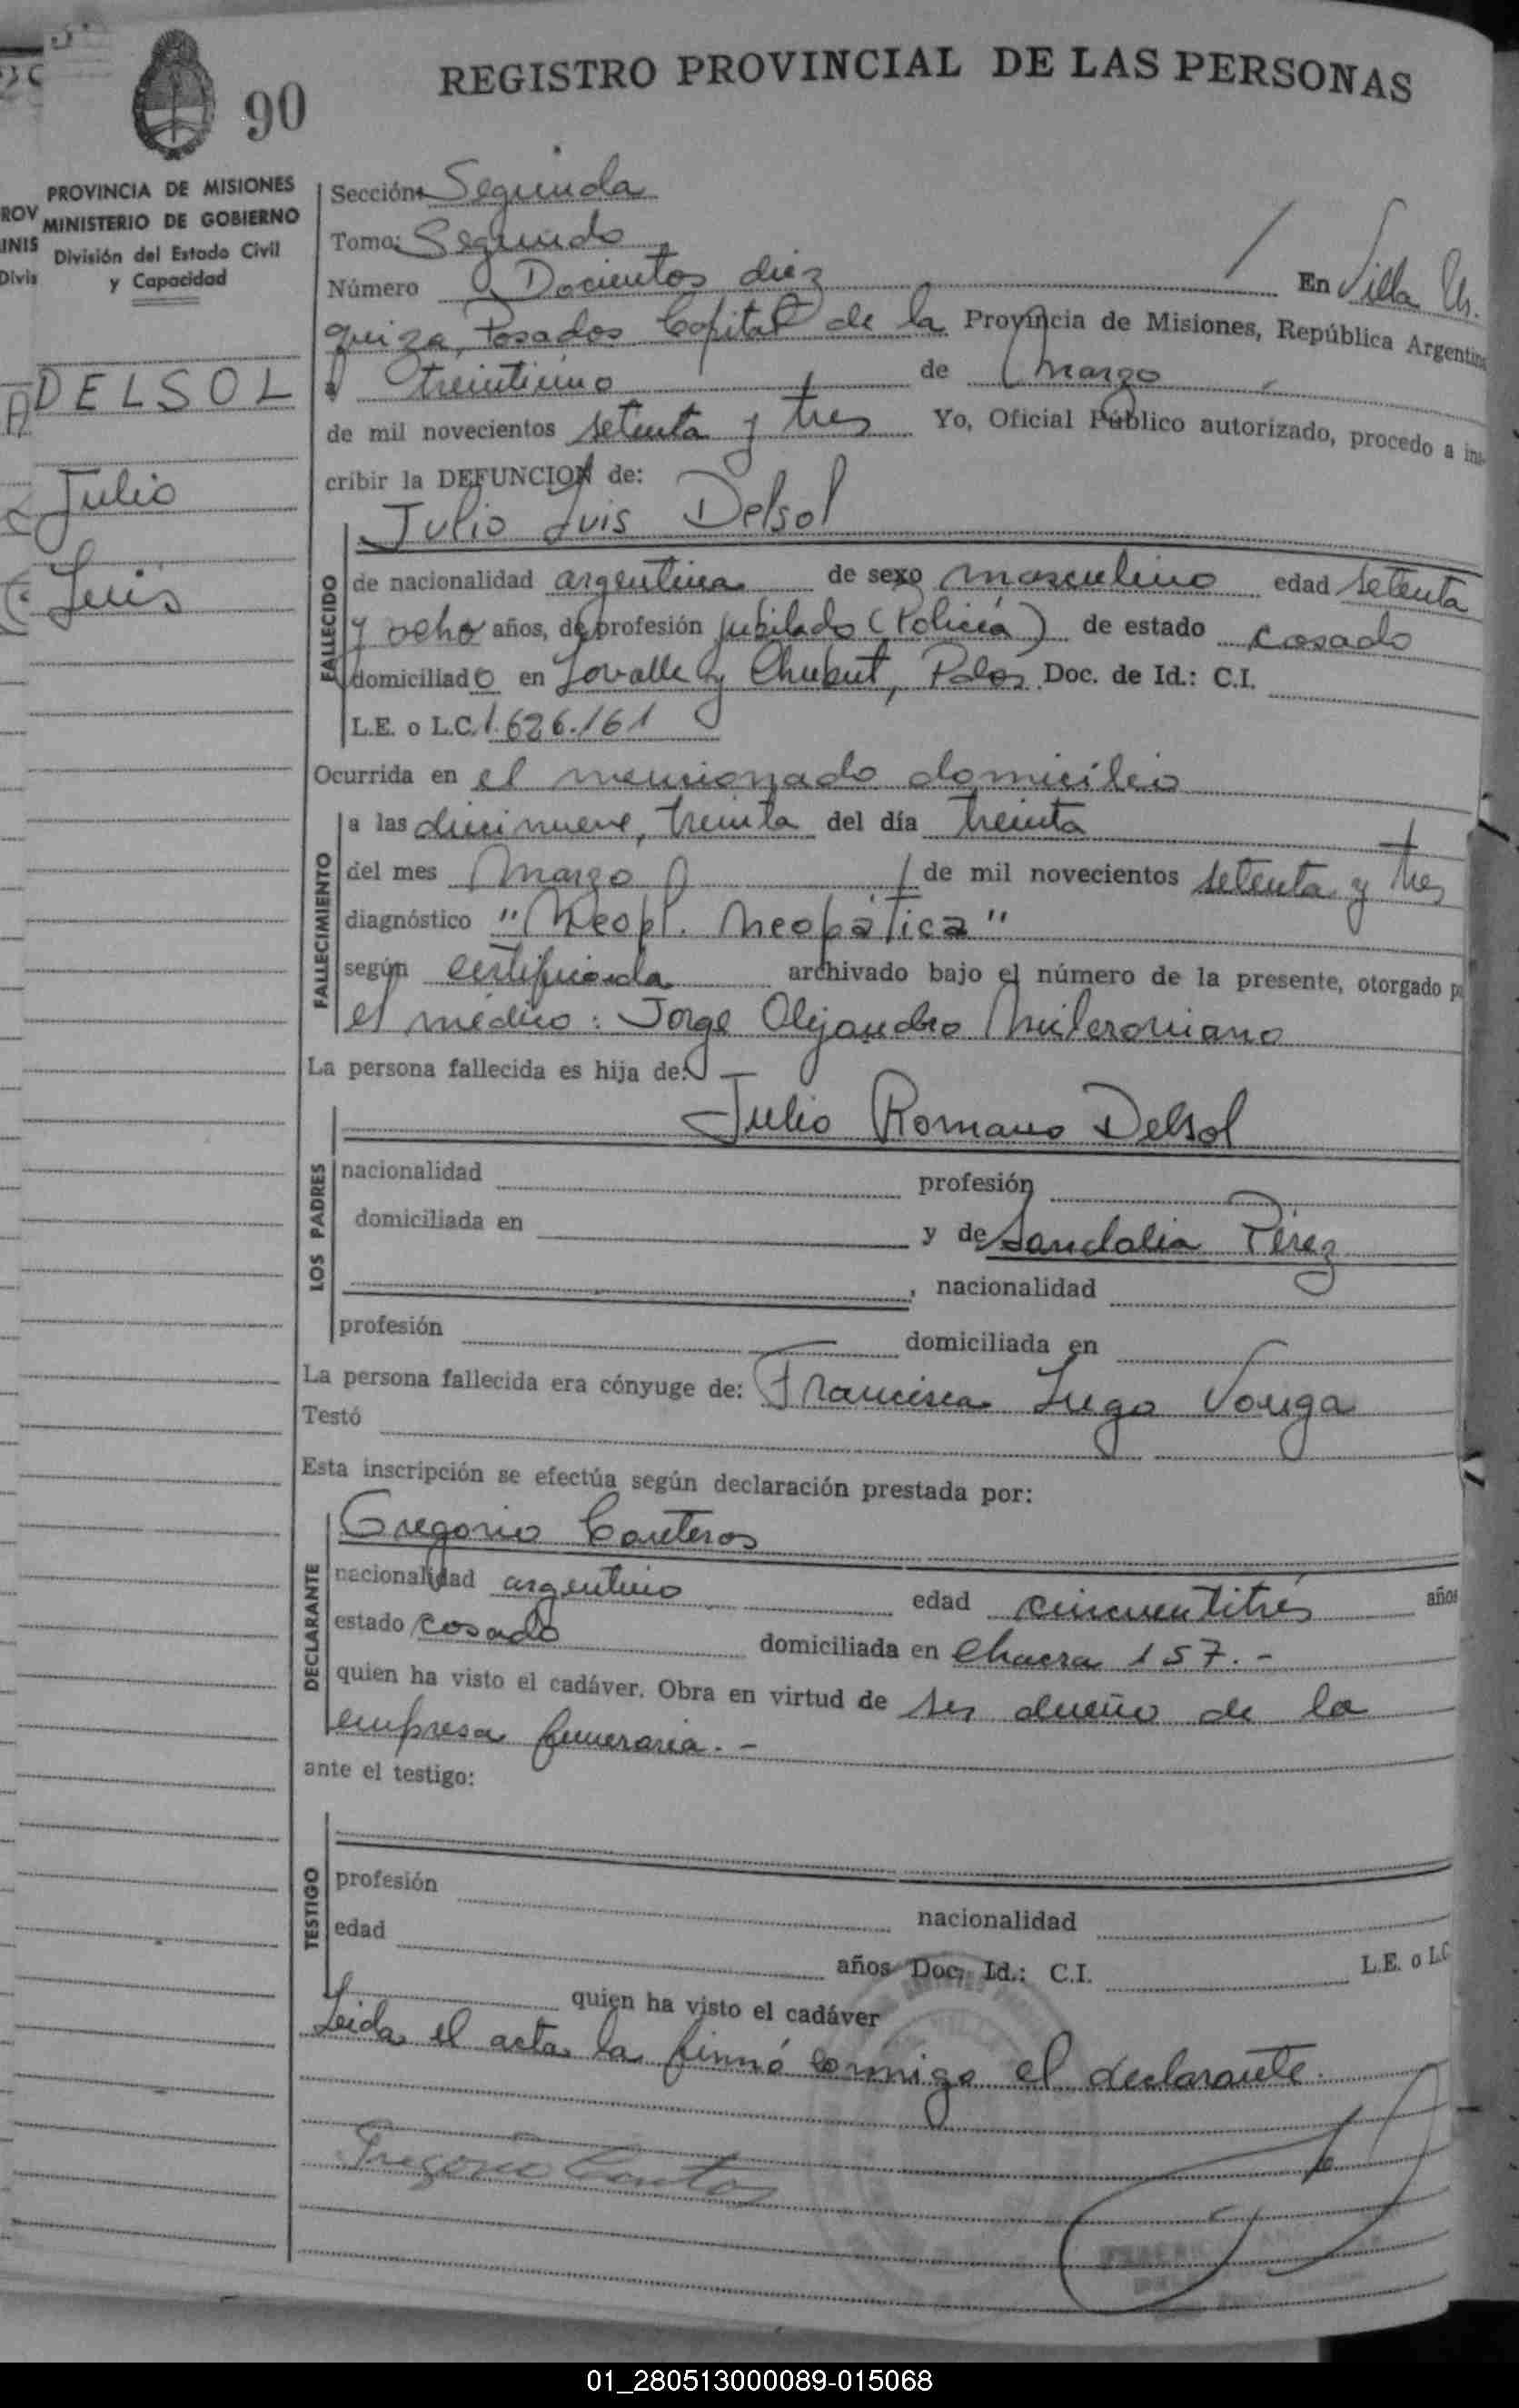 REGISTRO PROVINCIAL DE LAS PERSONAS
90
PROVINCIA DE MISIONES
MINISTERIO DE GOBIERNO
División del Estado Civil
y Capacidad
ROV
INIS
Divis
DELSOL
Julio
Luis
Sección: Segunda
Tomo: Segundo
Número Docientos diez En Villa Ur.
quiza, Posadas Capital de la Provincia de Misiones, República Argentina
a treintiuno de Marzo
de mil novecientos setenta y tres Yo, Oficial Público autorizado, procedo a ins-
cribir la DEFUNCION de:
Julio Luis Delsol
FALLECIDO
de nacionalidad argentina de sexo masculino edad setenta
y ocho años, de profesión jubilado (Policía) de estado casado
domiciliado en Lavalle y Chubut, Pdas. Doc. de Id.: C.I.
L.E. o L.C. 1.626.161
Ocurrida en el mencionado domicilio
FALLECIMIENTO
a las diecinueve, treinta del día treinta
del mes Marzo de mil novecientos setenta y tres
diagnóstico "Neopl. Neopática"
según certificado archivado bajo el número de la presente, otorgado p
el médico: Jorge Alejandro
La persona fallecida es hija de:
Julio Romano Delsol
LOS PADRES
nacionalidad profesión
domiciliada en y de Sandalia Pérez
, nacionalidad
profesión domiciliada en
La persona fallecida era cónyuge de: Francisca Lugo Vouga
Testó
Esta inscripción se efectúa según declaración prestada por:
Gregorio Canteros
DECLARANTE
nacionalidad argentino edad cincuentitrés años
estado casado domiciliada en Chacra 157.-
quien ha visto el cadáver. Obra en virtud de ser dueño de la
empresa funeraria.-
ante el testigo:
TESTIGO
profesión nacionalidad
edad años Doc. Id.: C.I. L.E. o L.C
quien ha visto el cadáver
Leida el acta la firmó conmigo el declarante.
Gregorio Canteros
01_280513000089-015068